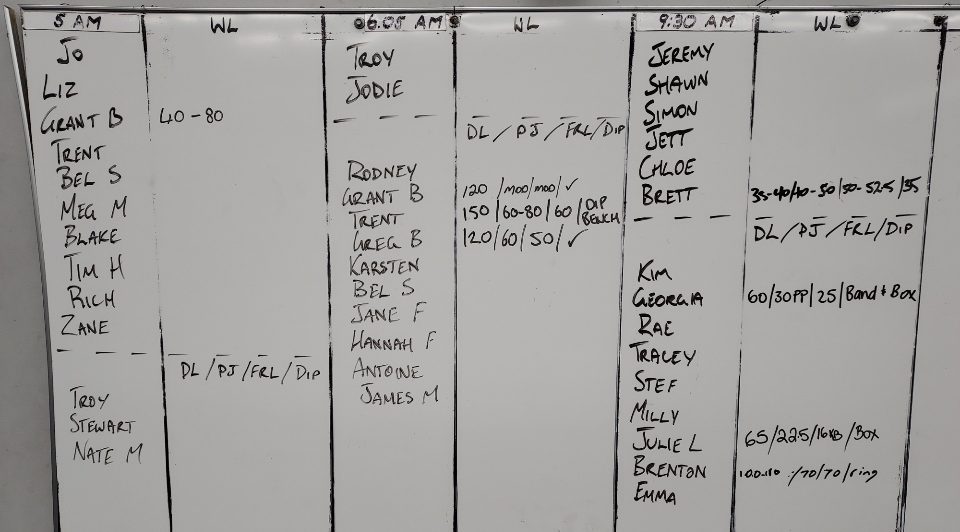 5 AM WL
JO
LIZ
GRANT B 40-80
TRENT
BEL S
MEG M
BLAKE
TIM H
RICH
ZANE
DL/PJ/FRL/DIP
TROY
STEWART
NATE M
6:05 AM WL
TROY
JODIE
DL/PJ/FRL/DIP
RODNEY
GRANT B 120/moo/moo/✓
TRENT 150/60-80/60/DIP BENCH
GREG B 120/60/50/✓
KARSTEN
BEL S
JANE F
HANNAH F
ANTOINE
JAMES M
9:30 AM WL
JEREMY
SHAWN
SIMON
JETT
CHLOE
BRETT 35-40/40-50/50-52.5/35
DL/PJ/FRL/DIP
KIM
GEORGIA 60/30PP/25/Band + Box
RAE
TRACEY
STEF
MILLY
JULIE L 65/22.5/16KB/BOX
BRENTON /70/70/ring
EMMA